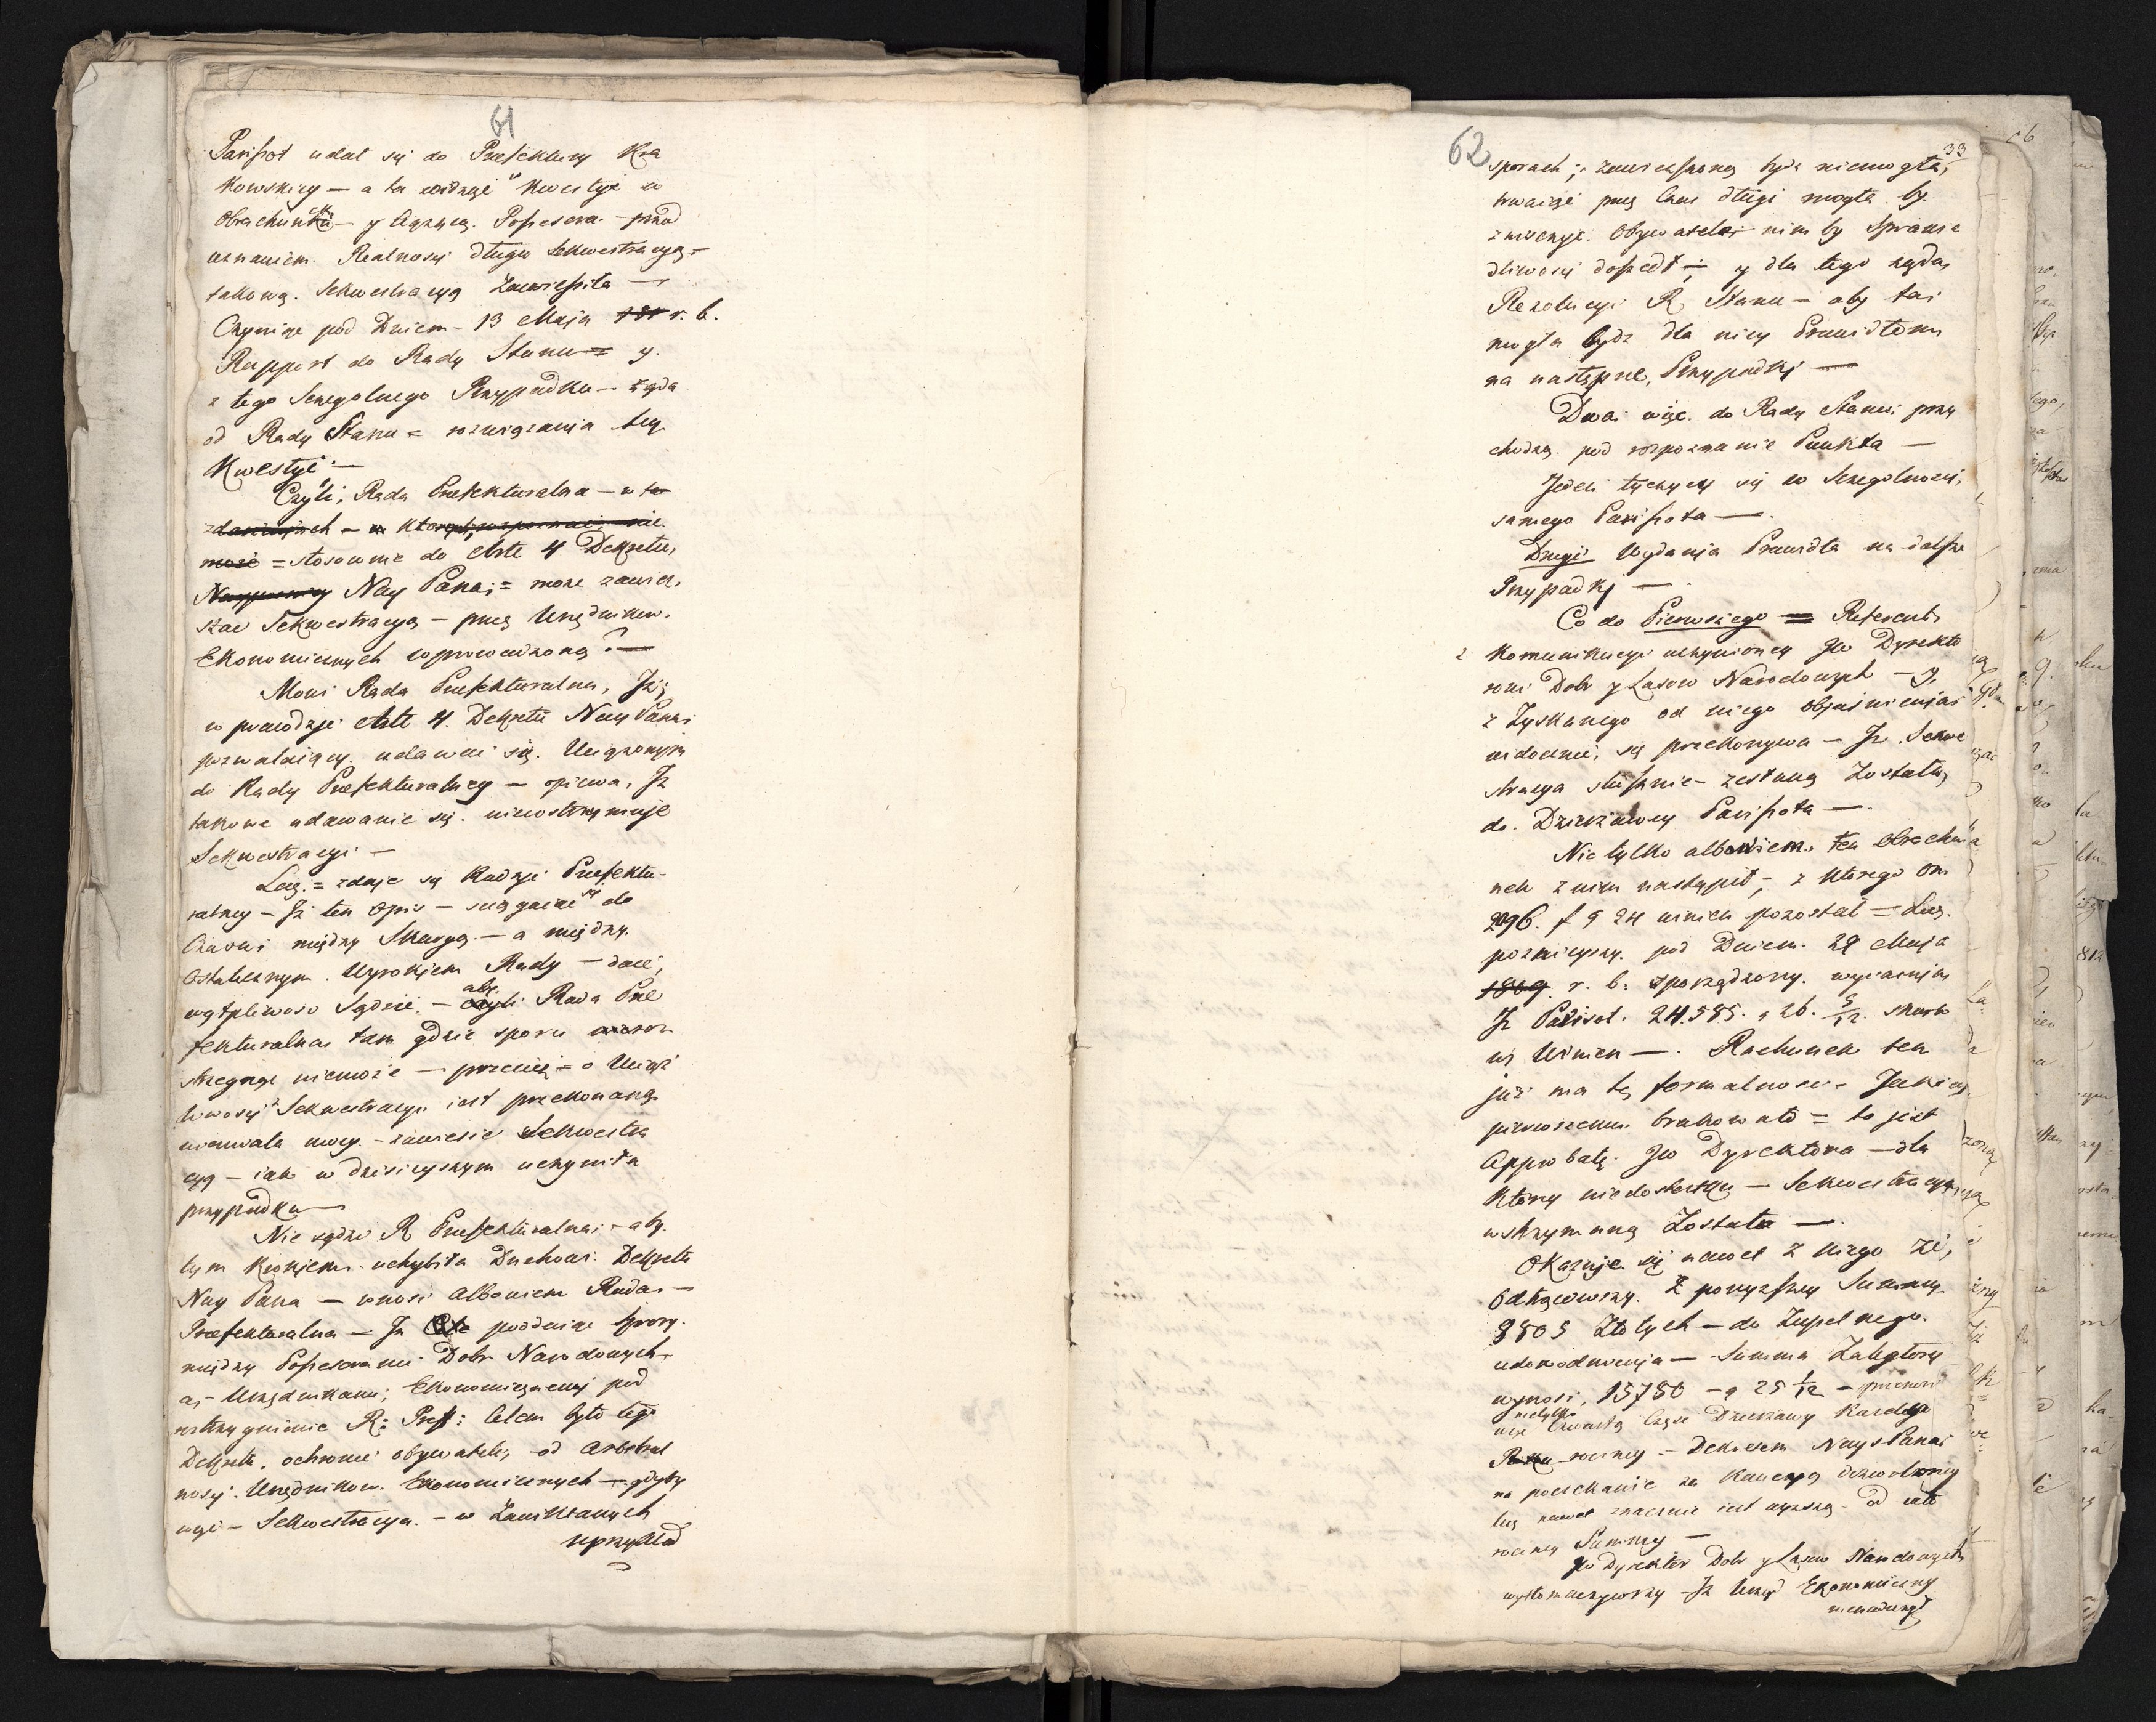 61
Parisot udał się do Prefektury Kra
kowskiey — a ta widząc kwestyę w
Obrachunku — y Posesora — przed
uznaniem Realnosci długu Sekwestracyą —
takową Sekwestracyą Zawiesiła —
Czyniąc pod Dniem — 13 Maja r. b.
Rapport do Rady Stanu = y
z tego Szczegolnego Przypadku — żąda
od Rady Stanu = rozwiązania tey
Kwestyi —
Czyli, Rada Prefekturalna — w
= stosownie do Artt 4 Dekretu,
Nay Pana = może zawie,
szac Sekwestracyą — przez Urzędnikow
Ekonomicznych wprowadzoną ? —
Mowi Rada Prefekturalna, Jż
w prawdzie Artt 4. Dekretu Nay Pana
pozwalaiący udawac się Uciążonym
do Rady Prefekturalney — opiewa, Jż
takowe udawanie się niewstrzymuje
Sekwestracyi —
Lecz = zdaje się Radzie Prefektu-
ralney — Jż ten Opis — sciągaiac się do
Czasu między Skargą — a między
Ostatecznym Wyrokiem Rady — daie,
wątpliwosc Sądzic, — aby Rada Pre
fekturalna tam gdzie sporu rozs
trzygnąc niemoże — przeciez — o Uciąż
liwosci Sekwestracyi iest przekonaną
niemiała mocy — zawiesic Sekwestra
cyą — iak w dzisieyszym uczyniła
przypadku —
Nie sądzi R Prefekturalna — aby
tym krokiem uchybiła Duchowi Dekretu
Nay Pana — wnosi albowiem Rada —
Prefekturalna — Jż poddaiąc spory
między Posesorami Dobr Narodowych
a — Urzędnikami, Ekonomicznemi pod
rozstrzygnienie R: Pref: Celem było tego
Dekretu, ochronic obywateli, od Arbitral
nosci Urzędnikow Ekonomicznych — gdyby
więc — Sekwestracya — w Zawikłanych
naprzykład
62
33
sporach, zawieszoną bydz niemogła,
trwaiąc przez Czas długi mogła by
zniszczyc Obywatela nim by Sprawie
dliwosci doszedł — y dla tego żąda,
Rezolucyi R Stanu — aby taż
mogła bydz dla niey Prawidłem
na następne, Przypadki —
Dwa więc do Rady Stanu przy
chodzą pod rozpoznanie Punkta —
Jeden tyczący się w Szczegolnosci,
samego Parisota —
Drugi Wydania Prawidła na dalsze
Przypadki —
Co do Pierwszego = Referent
z kommunikacyi uczynioney JW Dyrekto
rowi Dobr y Lasow Narodowych — y,
z Zyskanego od niego objasnienia
widocznie, się przekonywa — Jż Sekwe
stracya słusznie zesłaną Została,
do Dzierżawcy Parisota —
Nie tylko albowiem ten Obrachu
nek z nim nastąpił — z ktorego On
2096. f 9 24 winien pozostał = Lecz
poznieyszy pod Dniem 29 Maja
r. b: sporządzony wyiasnia
Jż Parisot 24.585. 9 26. 5/12. skarbo
wi Winien — Rachunek ten
już ma tę formalnosc Jakiey
pierwszemu brakowało = to jest
Approbatę JW Dyrektora — dla
ktorey niedostatku — Sekwestracya
wstrzymaną Została —
Okazuje się nawet z niego że,
Odtrąciwszy z powyższey Summy
8805 Złotych — do Zupełnego
udowodnienia — Summa Zaległosci
wynosi, 15780 — 9 25 1/12 — przenosi
więc nietylko Czwartą Częsc Dzierżawy Każdego
roczney — Dekretem Nays Pana
na poczekanie za Kaucyą dozwoloney
lecz nawet znacznie iest wyższą od cało
roczney Summy —
JW Dyrektor Dobr y Lasow Narodowych
wytłomaczywszy — Jż Urząd Ekonomiczny